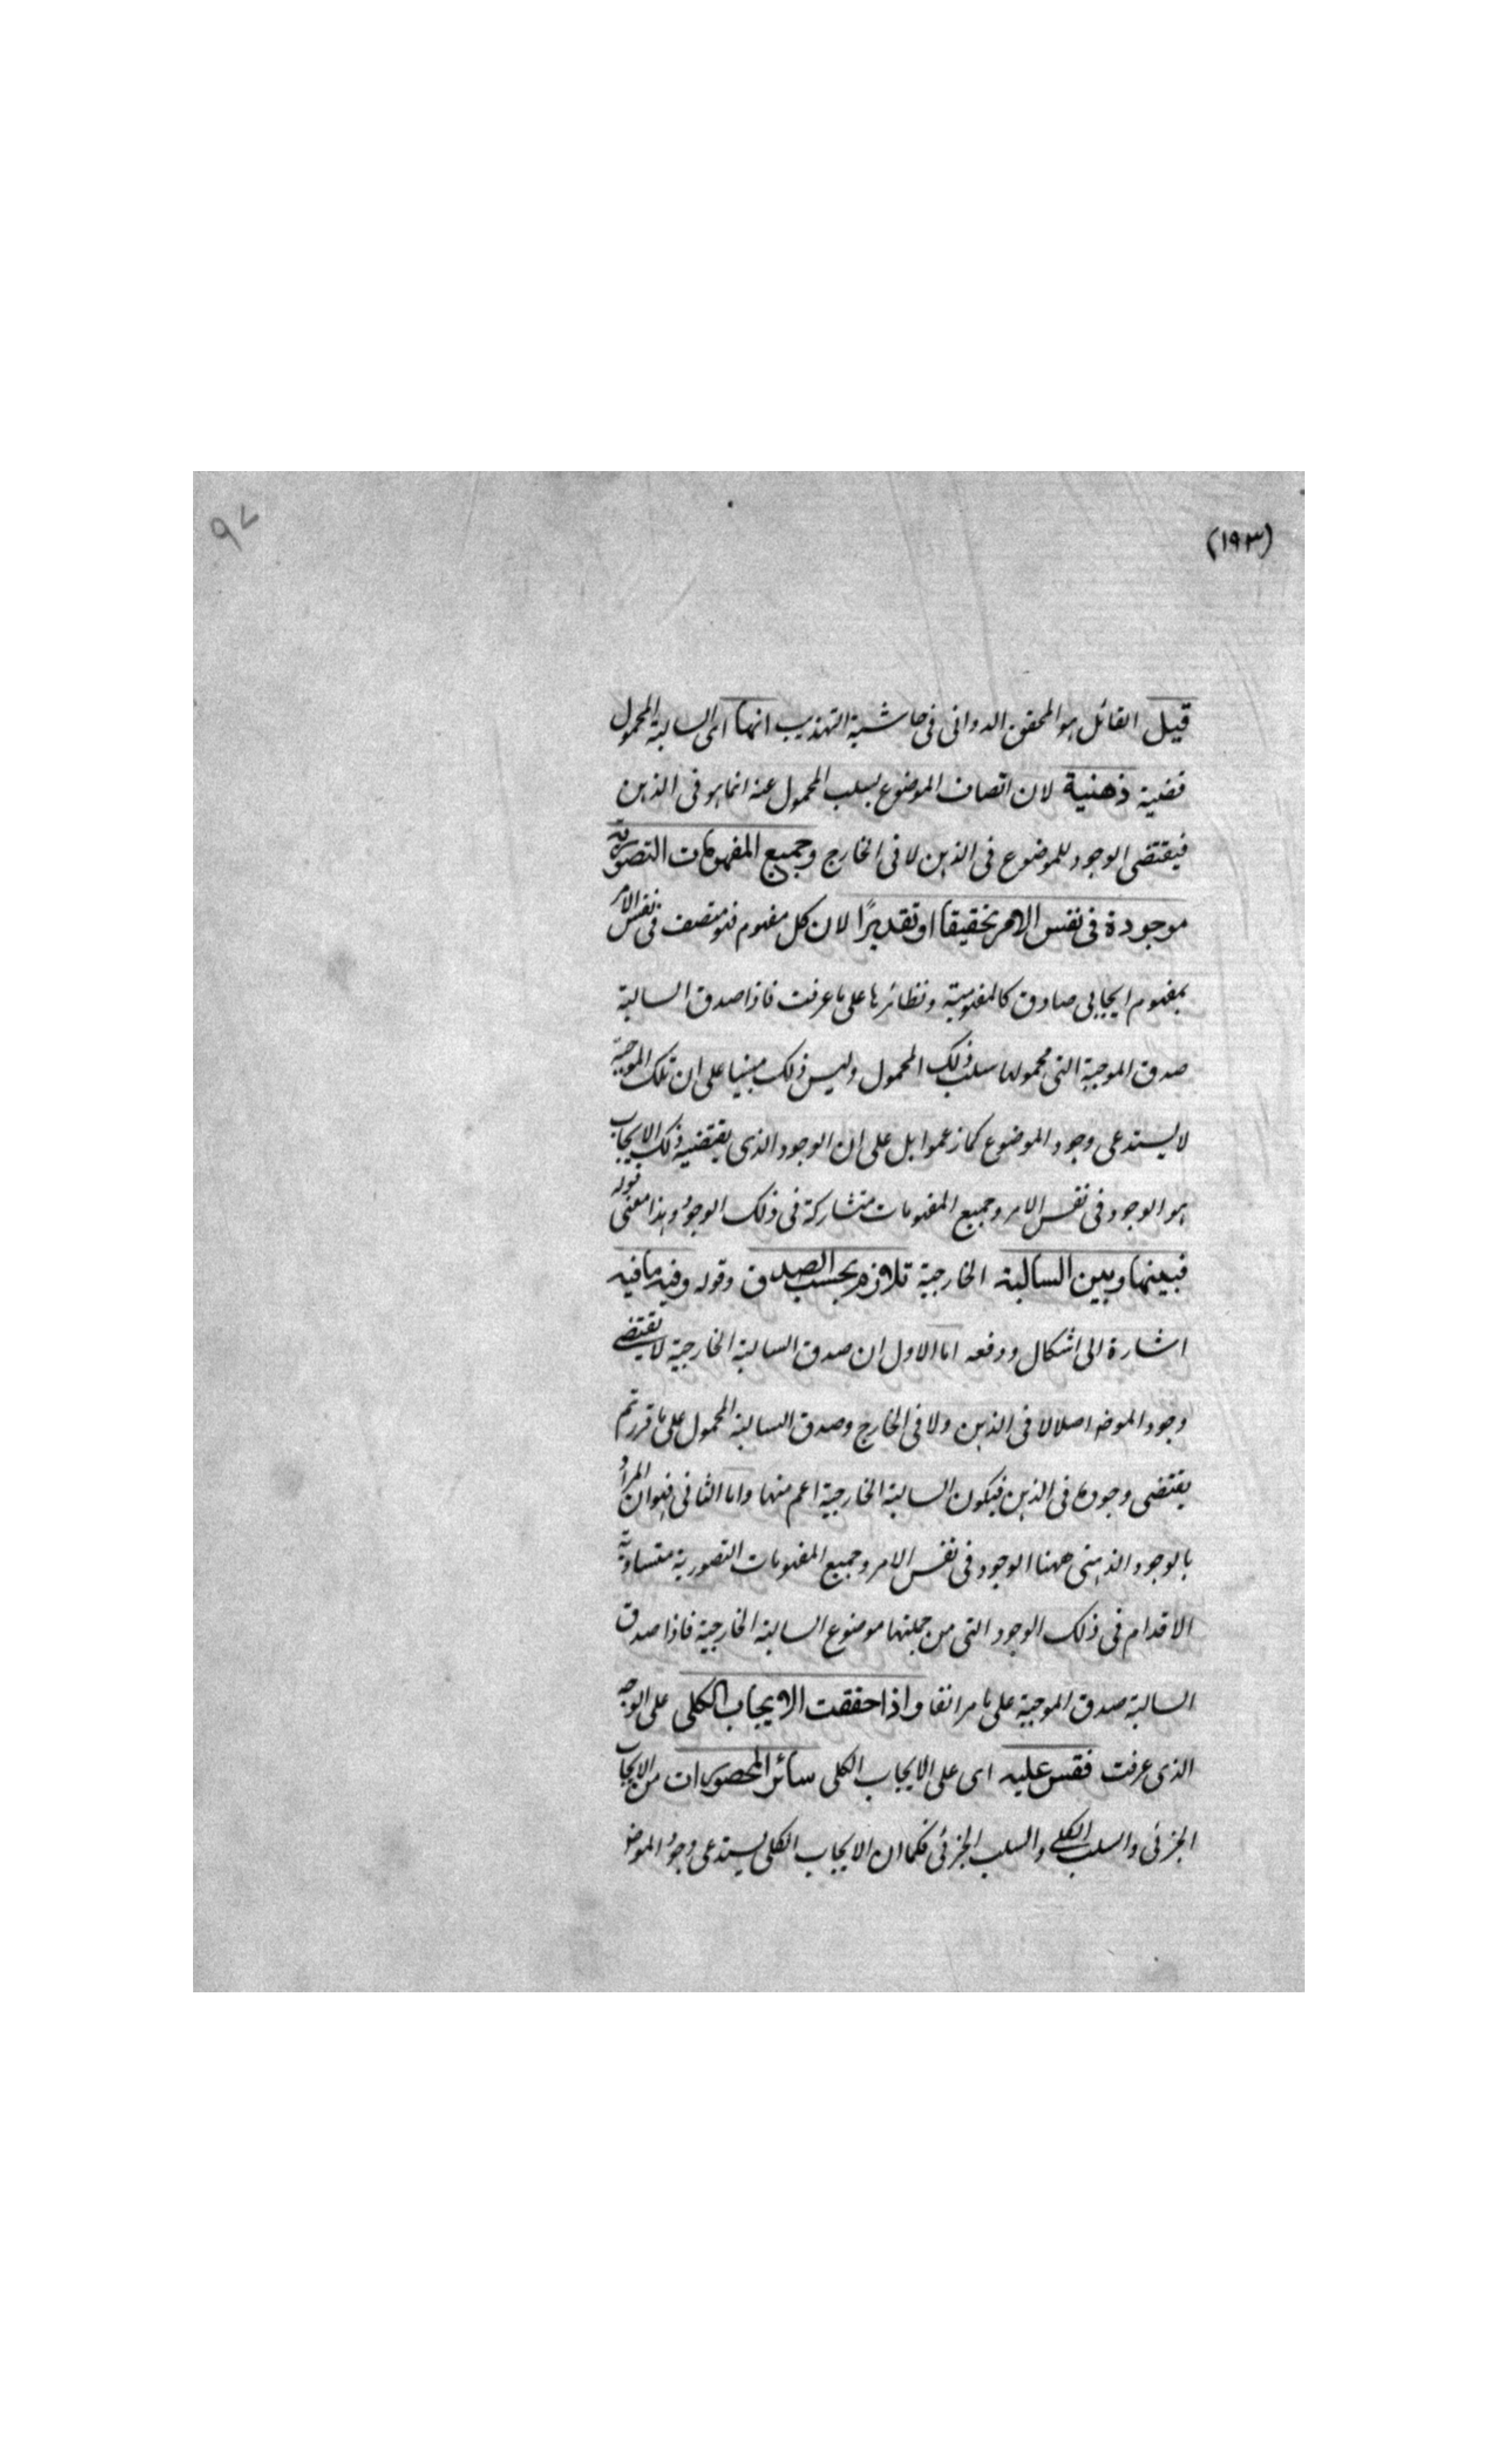 (١٩٣)
٩٧
قيل القائل هو المحقق الدوانى فى حاشية التهذيب انها اى السالبة المحمول
قضية ذهنية لان اتصاف الموضوع بسلب المحمول عنه انما هو فى الذهن
فيقتضى الوجود للموضوع فى الذهن لا فى الخارج وجميع المفهومات التصورية
موجودة فى نفس الامر تحقيقا او تقديرًا لان كل مفهوم فهو متصف فى نفس الامر
بمفهوم ايجابى صادق كالمفهومية ونظائرها على ما عرفت فاذا صدق السالبة
صدق الموجبة التى محمولها سلب ذلك المحمول وليس ذلك مبنيا على ان تلك الموجبة
لا يستدعى وجود الموضوع كما زعموا بل على ان الوجود الذى يقتضيه ذلك الايجاب
هو الوجود فى نفس الامر وجميع المفهومات متشاركة فى ذلك الوجود وهذا معنى قوله
فبينها وبين السالبة الخارجية تلازم بحسب الصدق وقوله وفيه ما فيه
اشارة الى اشكال ودفعه اما الاول ان صدق السالبة الخارجية لا يقتضے
وجود الموضوع اصلا لا فى الذهن ولا فى الخارج وصدق السالبة المحمول على ما قررتم
يقتضى وجوده فى الذهن فيكون السالبة الخارجية اعم منها واما الثانى فهو ان المراد
بالوجود الذهنى ههنا الوجود فى نفس الامر وجميع المفهومات التصورية متساوية
الاقدام فى ذلك الوجود التى من جملتها موضوع السالبة الخارجية فاذا صدق
السالبة صدق الموجبة على ما مر انفا واذا حققت الايجاب الكلى على الوجه
الذى عرفت فقس عليه اى على الايجاب الكلى سائر المحصورات من الايجاب
الجزئى والسلب الكلے والسلب الجزئى فكما ان الايجاب الكلى يستدعى وجود الموضو